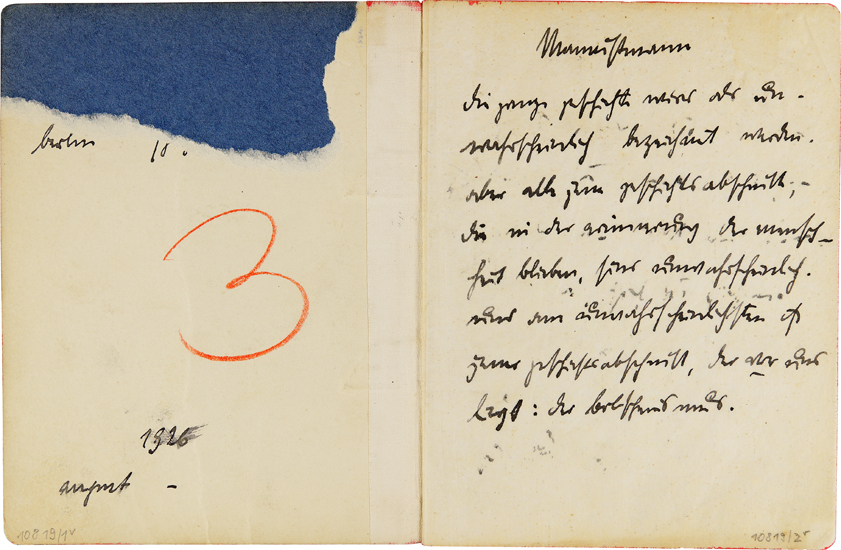 berlin 10.
3
1926
august –
10819/1v
Mannistmann
die ganze geschichte wird als un-
wahrscheinlich bezeichnet werden.
aber alle jene geschichtsabschnitte,
die in der erinnerung der mensch-
heit blieben, sind unwahrscheinlich.
und am unwahrscheinlichsten ist
jener geschichtsabschnitt, der vor uns
liegt: der bolschewismus.
10819/2r